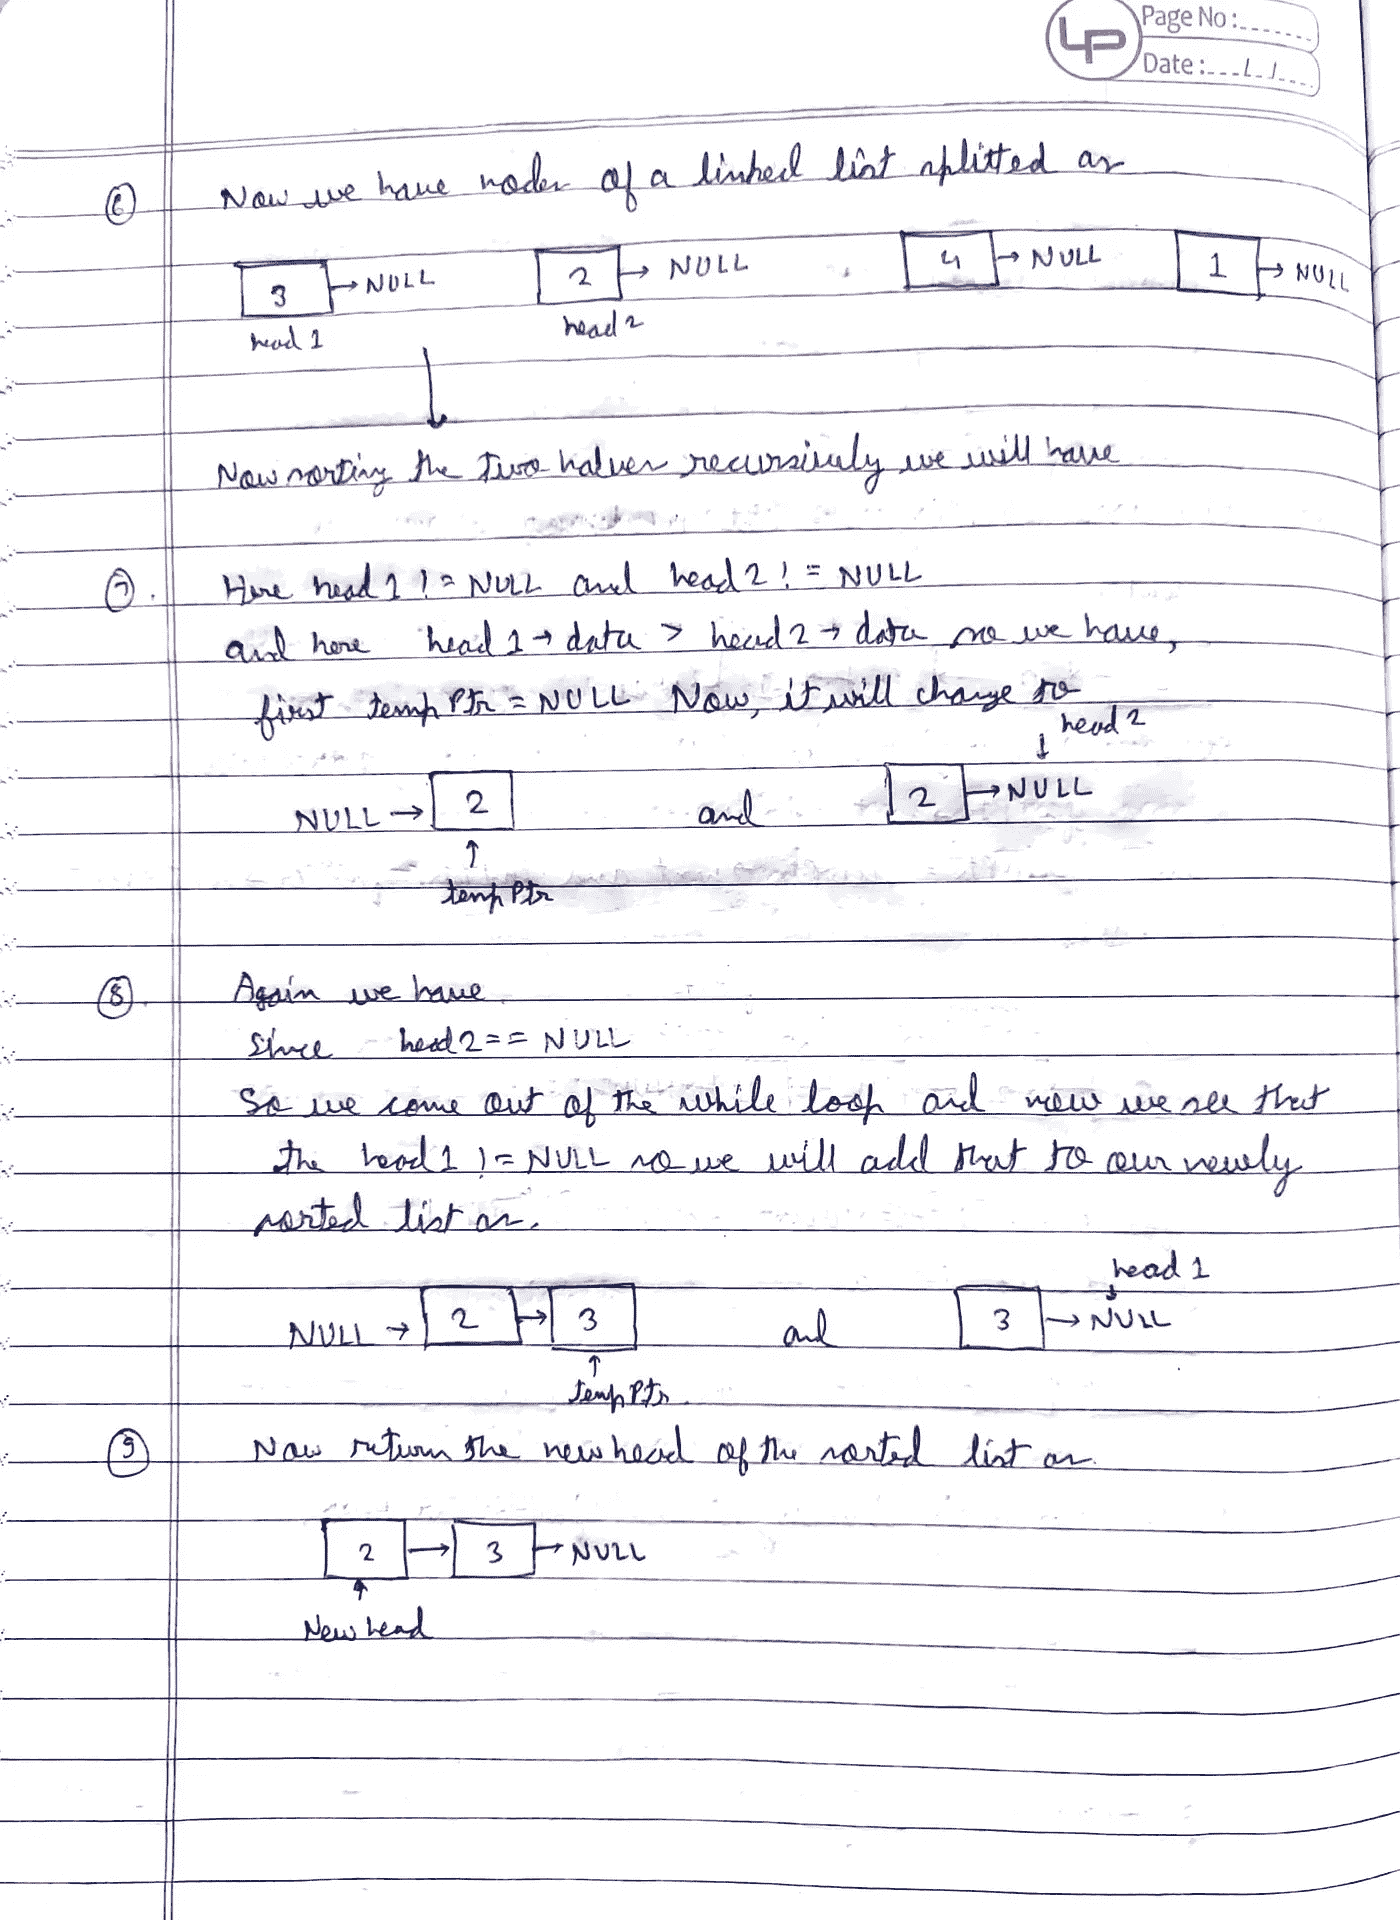 LP Page No:
Date: / /
6 Now we have nodes of a linked list splitted as
3 → NULL 2 → NULL 4 → NULL 1 → NULL
head 1 head 2
↓
Now sorting the two halves recursively we will have
7. Here head 1 != NULL and head 2 != NULL
and here head 1 → data > head 2 → data so we have,
first temp Ptr = NULL Now, it will change to
head 2
↓
NULL → 2 and 2 → NULL
↑
temp Ptr
8. Again we have
Since head 2 == NULL
So we come out of the while loop and now we see that
the head 1 != NULL so we will add that to our newly
sorted list as.
head 1
↓
NULL → 2 → 3 and 3 → NULL
↑
temp Ptr.
9 Now return the new head of the sorted list as.
2 → 3 → NULL
↑
New head